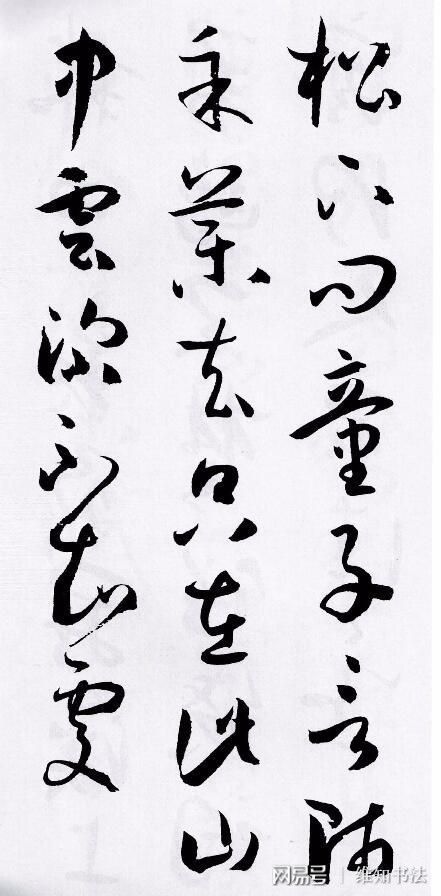 松下问童子言师
采药去只在此山
中雲深不知处
网易号 | 维知书法